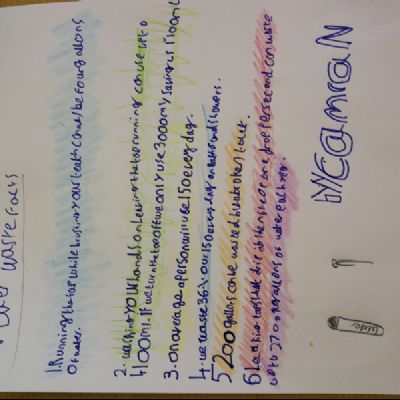 waste facts
1. Running the tap while brushing your teeth can waste four gallons
of water.
2. washing your hands and leaving the tap running can use up to
4100ml. If we turn the tap off we only use 3000ml, saving us 1100ml.
3. on average a person will use 150 every day.
4. we waste 36% our 150 every day on baths and showers.
5 200 gallons can be wasted by a broken toilet.
6 Leaking taps that drip at the rate of one drop per second can waste
up to 2700 gallons of water each year.
by Camran